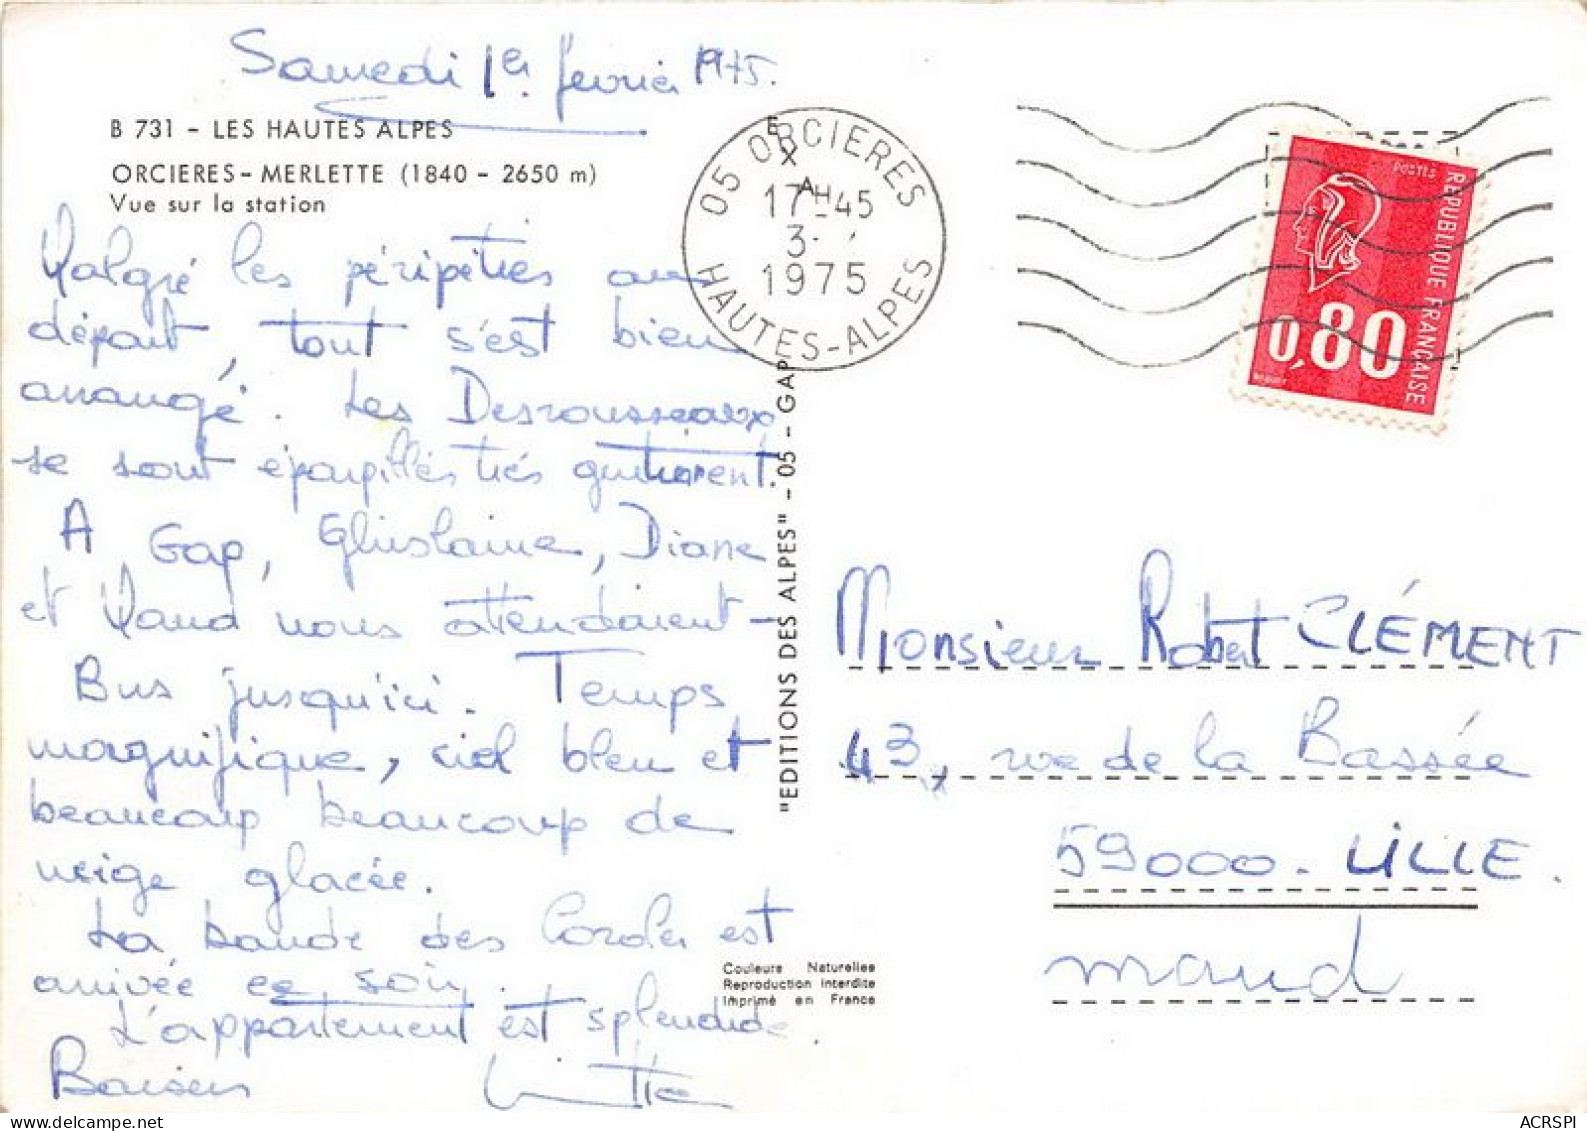 Samedi 1er février 1975.
B 731 - LES HAUTES ALPES
ORCIERES - MERLETTE (1840 - 2650 m)
Vue sur la station
Malgré les péripéties au
départ, tout s'est bien
arrangé. Les Desrousseaux
se sont éparpillés très gentiment.
A Gap, Ghislaine, Diane
et Maud nous attendaient -
Bus jusqu'ici. Temps
magnifique, ciel bleu et
beaucoup beaucoup de
neige glacée.
La bande des est
arrivée ce soir.
L'appartement est splendide.
Baisers
"EDITIONS DES ALPES" - 05 - GAP
Couleurs Naturelles
Reproduction Interdite
Imprimé en France
05 ORCIERES
17H45
3
1975
HAUTES-ALPES
POSTES
REPUBLIQUE FRANÇAISE
0,80
Monsieur Robert CLÉMENT
43, rue de la Bassée
59000 - LILLE.
maud
ACRSPI